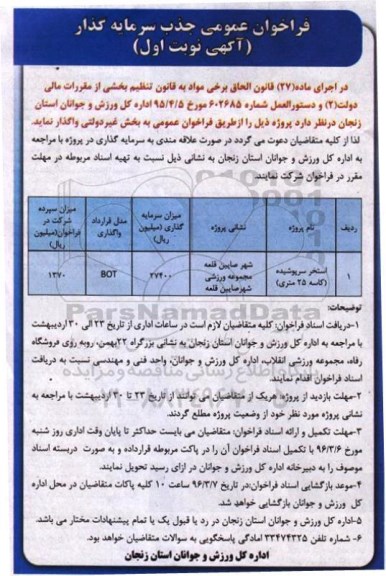 فراخوان عمومی جذب سرمایه گذار
(آگهی نوبت اول)
در اجرای ماده(۲۷) قانون الحاق برخی مواد به قانون تنظیم بخشی از مقررات مالی
دولت(۲) و دستورالعمل شماره ۶۰۲۶۸۵ مورخ ۹۵/۴/۵ اداره کل ورزش و جوانان استان
زنجان درنظر دارد پروژه ذیل را ازطریق فراخوان عمومی به بخش غیردولتی واگذار نماید.
لذا از کلیه متقاضیان دعوت می گردد در صورت علاقه مندی به سرمایه گذاری در پروژه با مراجعه
به اداره کل ورزش و جوانان استان زنجان به نشانی ذیل نسبت به تهیه اسناد مربوطه در مهلت
مقرر در فراخوان شرکت نمایند.
ردیف نام پروژه نشانی پروژه میزان سرمایه گذاری (میلیون ریال) مدل قرارداد واگذاری میزان سپرده شرکت در فراخوان(میلیون ریال)
۱ استخر سرپوشیده (کاسه ۲۵ متری) شهر صایین قلعه مجموعه ورزشی شهرصایین قلعه ۲۷۴۰۰ BOT ۱۳۷۰
توضیحات:
۱-دریافت اسناد فراخوان: کلیه متقاضیان لازم است در ساعات اداری از تاریخ ۲۳ الی ۳۰ اردیبهشت
با مراجعه به اداره کل ورزش و جوانان استان زنجان به نشانی بزرگراه ۲۲بهمن، روبه روی فروشگاه
رفاه، مجموعه ورزشی انقلاب، اداره کل ورزش و جوانان، واحد فنی و مهندسی نسبت به دریافت
اسناد فراخوان اقدام نمایند.
۲-مهلت بازدید از پروژه: هریک از متقاضیان می توانند از تاریخ ۲۳ تا ۳۰ اردیبهشت با مراجعه به
نشانی پروژه مورد نظر خود از وضعیت پروژه مطلع گردند.
۳-مهلت تکمیل و ارائه اسناد فراخوان: متقاضیان می بایست حداکثر تا پایان وقت اداری روز شنبه
مورخ ۹۶/۳/۶ با تکمیل اسناد فراخوان آن را در پاکت مربوطه قرارداده و به صورت دربسته اسناد
موصوف را به دبیرخانه اداره کل ورزش و جوانان در ازای رسید تحویل نمایند.
۴-موعد بازگشایی اسناد فراخوان:در تاریخ ۹۶/۳/۷ ساعت ۱۰ کلیه پاکات متقاضیان در محل اداره
کل ورزش و جوانان بازگشایی خواهد شد.
۵-اداره کل ورزش و جوانان استان زنجان در رد یا قبول یک یا تمام پیشنهادات مختار می باشد.
۶- شماره تلفن ۳۳۴۷۴۳۲۵ آمادگی پاسخگویی به سوالات متقاضیان خواهد بود.
اداره کل ورزش و جوانان استان زنجان